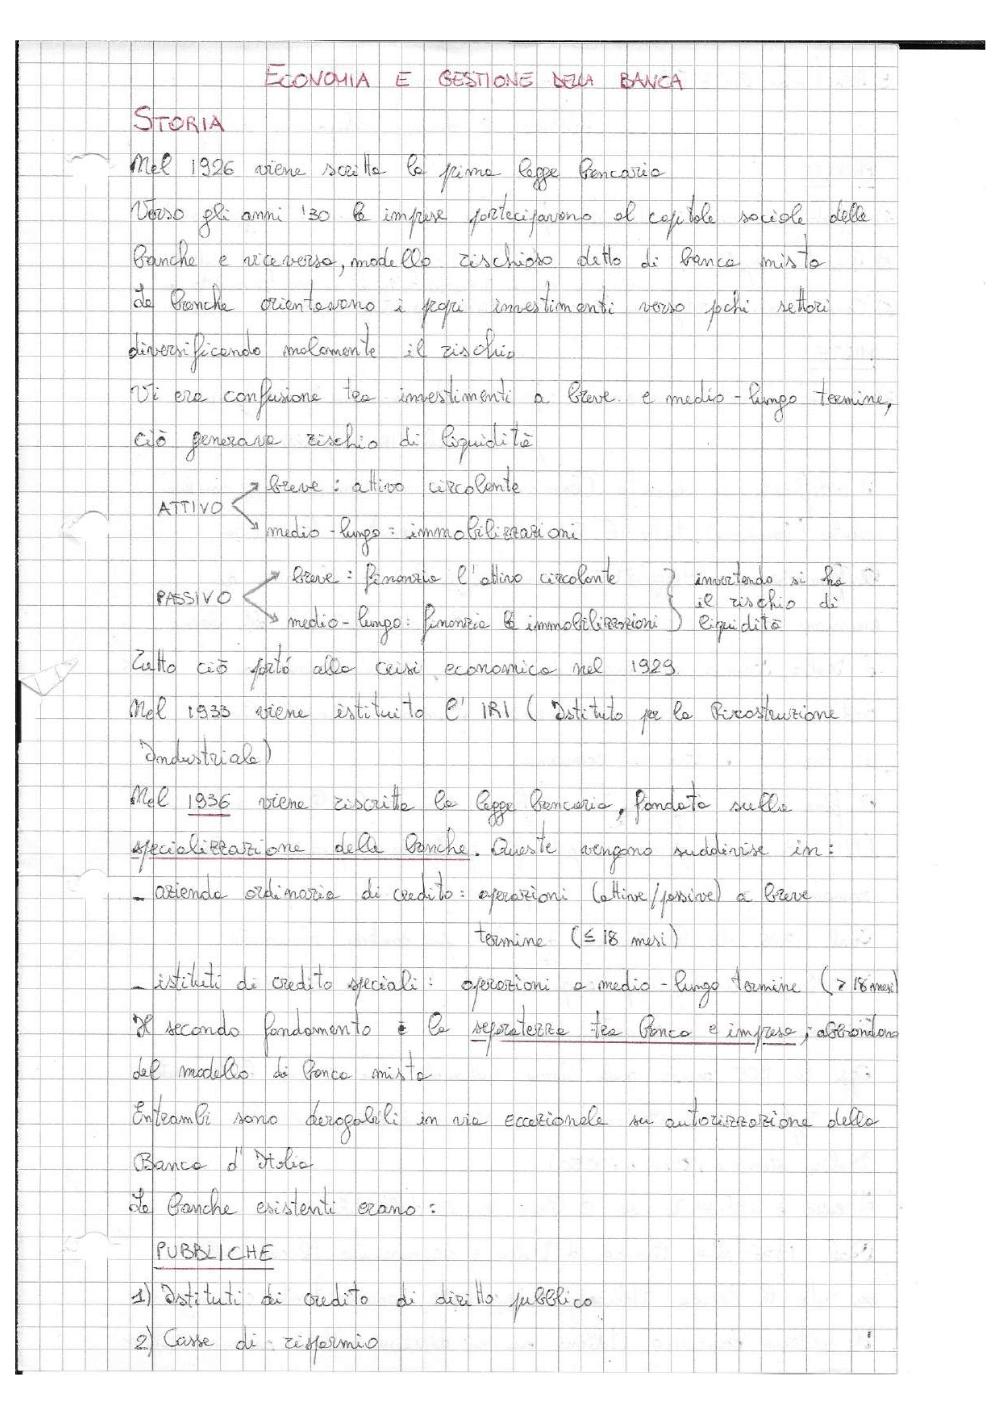 ECONOMIA E GESTIONE DELLA BANCA
STORIA
Nel 1926 viene scritta la prima legge bancaria
Verso gli anni '30 le imprese partecipavano al capitale sociale delle
banche e viceversa, modello rischioso detto di banca mista
Le banche orientavano i propri investimenti verso pochi settori
diversificando malamente il rischio
Vi era confusione tra investimenti a breve e medio-lungo termine,
ciò generava rischio di liquidità
ATTIVO
breve : attivo circolante
medio-lungo : immobilizzazioni
PASSIVO
breve : finanzia l'attivo circolante
medio-lungo : finanzia le immobilizzazioni
invertendo si ha
il rischio di
liquidità
Tutto ciò portó alla crisi economica nel 1929
Nel 1933 viene istituito l'IRI (Istituto per la Ricostruzione
Industriale)
Nel 1936 viene riscritta la legge bancaria, fondata sulla
specializzazione delle banche. Queste vengono suddivise in :
- azienda ordinaria di credito : operazioni (attive/passive) a breve
termine (≤ 18 mesi)
- istituti di credito speciali : operazioni a medio-lungo termine (> 18 mesi)
Il secondo fondamento è la separatezza tra banca e impresa, abbandono
del modello di banca mista
Entrambi sono derogabili in via eccezionale su autorizzazione della
Banca d'Italia
Le banche esistenti erano :
PUBBLICHE
1) Istituti di credito di diritto pubblico
2) Casse di risparmio